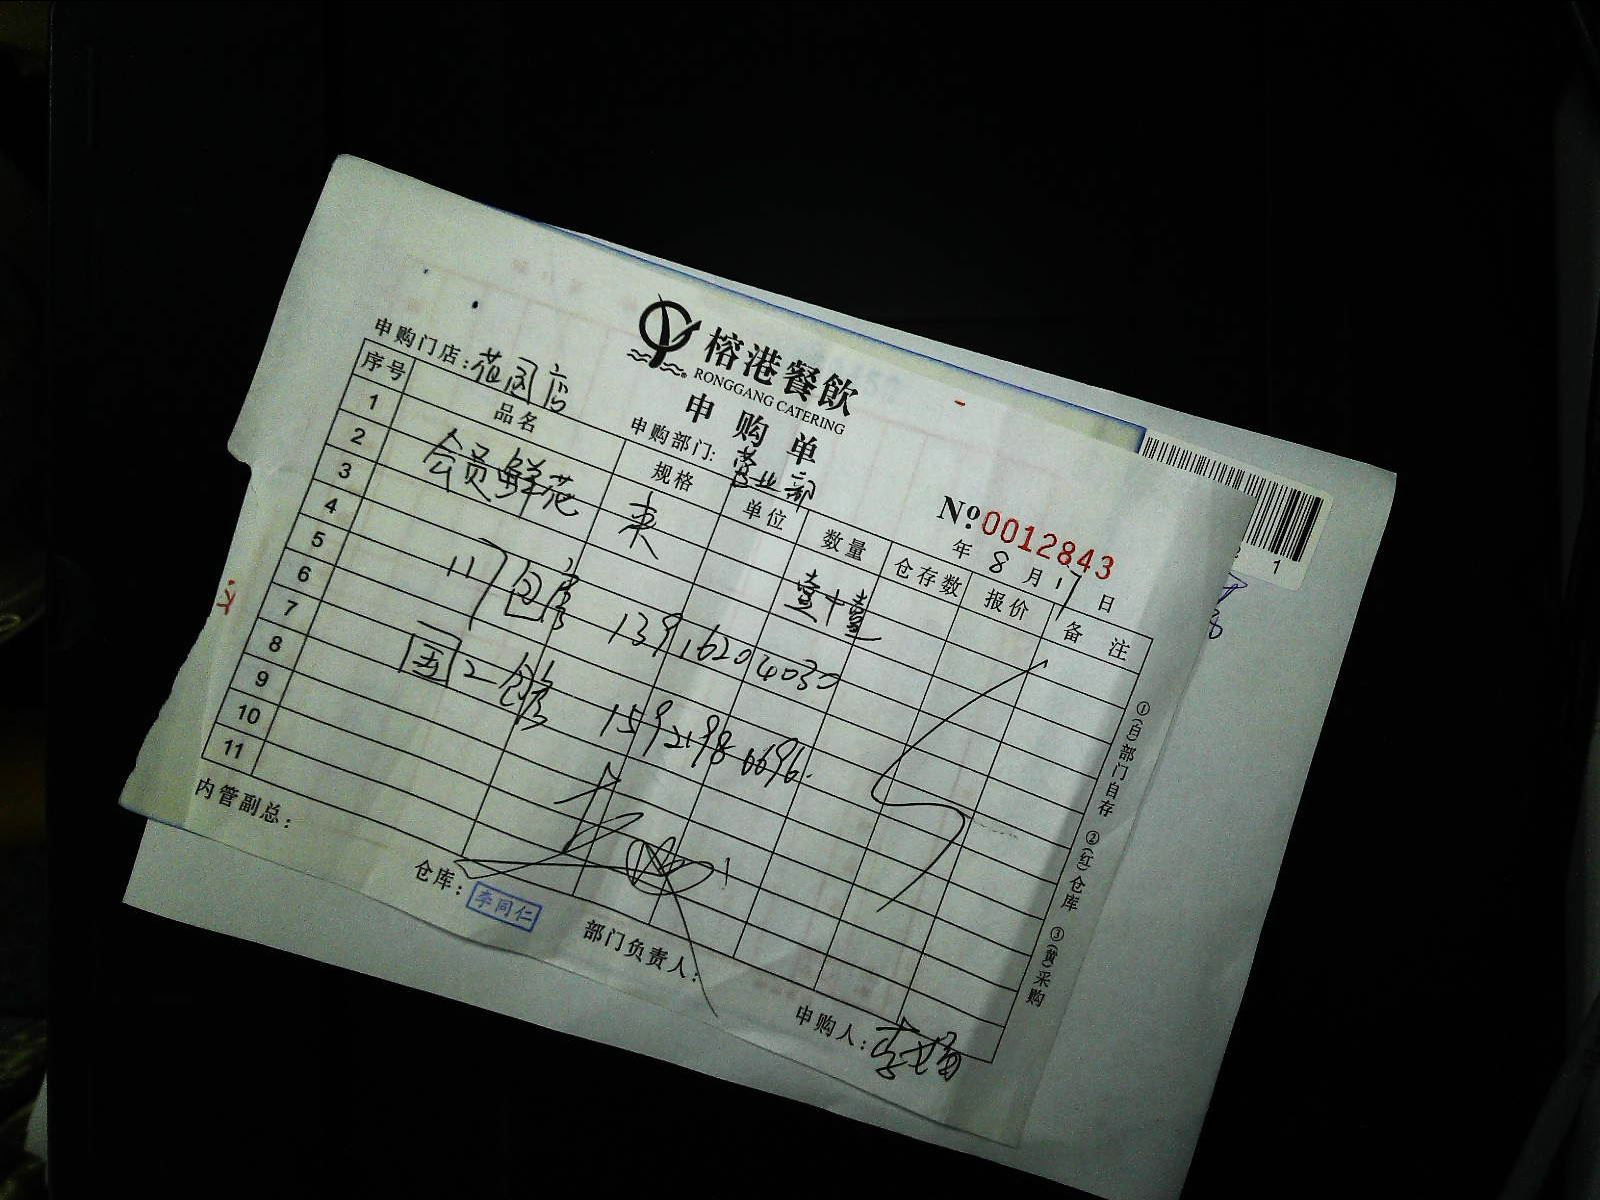 榕港餐飲
RONGGANG CATERING
申购单
No.0012843
申购门店:花园店 申购部门:营业部 年 8 月 17 日
序号 品名 规格 单位 数量 仓存数 报价 备注
1 会员鲜花 束 壹+壹
2
3
4 117包房 13916204030
5
6 2包房 15921986696
7
8
9
10
11
内管副总: 仓库:李同仁 部门负责人: 申购人:李
①(白)部门自存 ②(红)仓库 ③(黄)采购
1